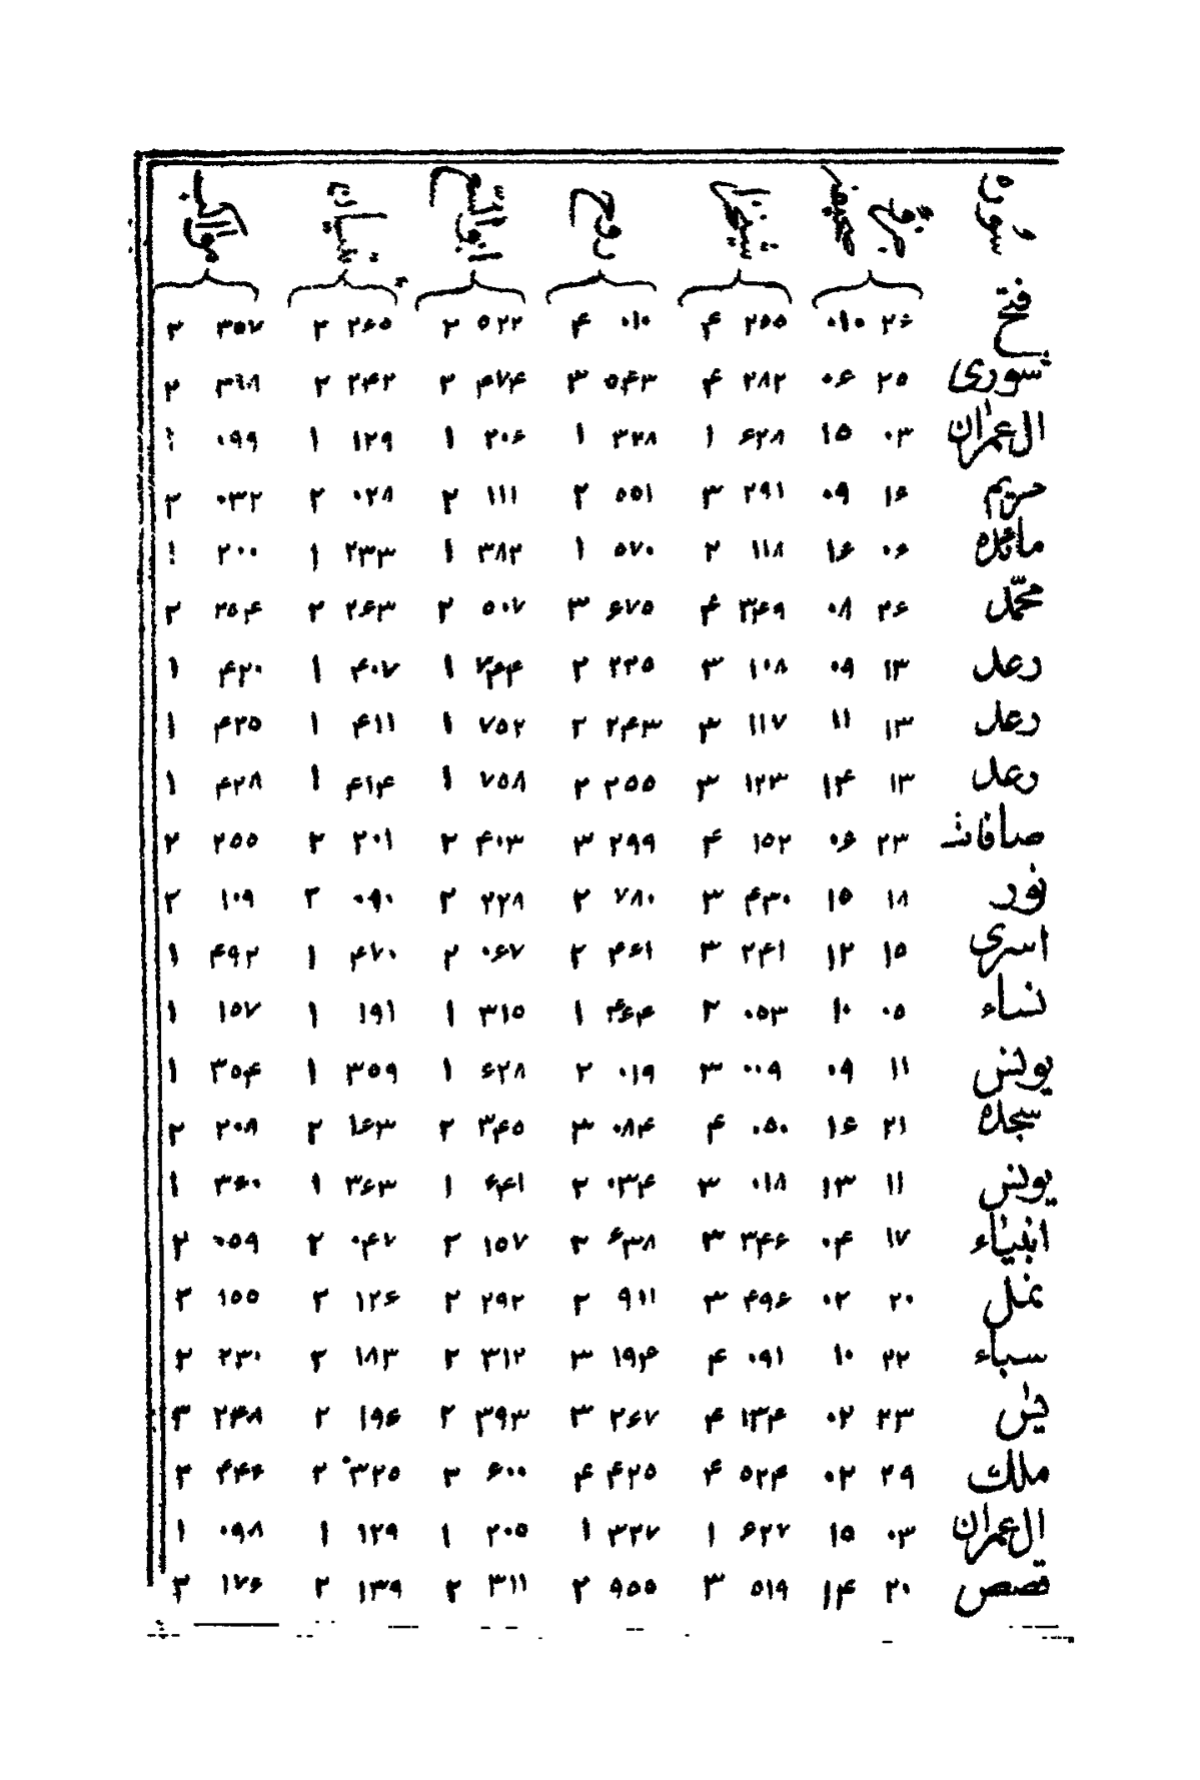 سوره جزؤ صحیفه شیخزاده روح ابوالسعود تبیان مواکب
فتح ۲۶ ۰۱۰ ۲۶۵ ۴ ۰۱۰ ۴ ۵۲۲ ۲ ۲۶۵ ۲ ۳۵۷ ۲
شوری ۲۵ ۰۶ ۲۸۲ ۴ ۵۴۳ ۳ ۴۷۴ ۲ ۲۴۲ ۲ ۳۱۸ ۲
ال عمران ۰۳ ۱۵ ۶۲۸ ۱ ۳۲۸ ۱ ۲۰۶ ۱ ۱۲۹ ۱ ۰۹۹ ۱
مریم ۱۶ ۰۹ ۲۹۱ ۳ ۵۵۱ ۲ ۱۱۱ ۲ ۰۲۸ ۲ ۰۳۲ ۲
مائده ۰۶ ۱۶ ۱۱۸ ۲ ۵۷۰ ۱ ۳۸۲ ۱ ۲۳۳ ۱ ۲۰۰ ۱
محمّد ۲۶ ۰۸ ۳۴۹ ۴ ۶۷۵ ۳ ۵۰۷ ۲ ۲۶۳ ۲ ۲۵۴ ۲
رعد ۱۳ ۰۹ ۱۰۸ ۳ ۲۲۵ ۲ ۷۴۴ ۱ ۴۰۷ ۱ ۴۲۰ ۱
رعد ۱۳ ۱۱ ۱۱۷ ۳ ۲۴۳ ۲ ۷۵۲ ۱ ۴۱۱ ۱ ۴۲۵ ۱
رعد ۱۳ ۱۴ ۱۲۳ ۳ ۲۵۵ ۲ ۷۵۸ ۱ ۴۱۴ ۱ ۴۲۸ ۱
صافات ۲۳ ۰۶ ۱۵۲ ۴ ۲۹۹ ۳ ۴۰۳ ۲ ۲۰۱ ۲ ۲۵۵ ۲
نور ۱۸ ۱۵ ۴۳۰ ۳ ۷۸۰ ۲ ۲۲۸ ۲ ۰۹۰ ۲ ۱۰۹ ۲
اسری ۱۵ ۱۲ ۲۴۱ ۳ ۴۶۱ ۲ ۰۶۷ ۲ ۴۷۰ ۱ ۴۹۲ ۱
نساء ۰۵ ۱۰ ۰۵۳ ۲ ۴۶۴ ۱ ۳۱۵ ۱ ۱۹۱ ۱ ۱۵۷ ۱
یونس ۱۱ ۰۹ ۰۰۹ ۳ ۰۱۹ ۲ ۶۲۸ ۱ ۳۵۹ ۱ ۳۵۴ ۱
سجده ۲۱ ۱۶ ۰۵۰ ۴ ۰۸۴ ۳ ۳۴۵ ۲ ۱۶۳ ۲ ۲۰۸ ۲
یونس ۱۱ ۱۳ ۰۱۸ ۳ ۰۳۴ ۲ ۶۴۱ ۱ ۳۶۳ ۱ ۳۶۰ ۱
انبیاء ۱۷ ۰۴ ۳۴۶ ۳ ۶۳۸ ۲ ۱۵۷ ۲ ۰۴۷ ۲ ۰۵۹ ۲
نمل ۲۰ ۰۲ ۴۹۶ ۳ ۹۱۱ ۲ ۲۹۲ ۲ ۱۲۶ ۲ ۱۵۵ ۲
سباء ۲۲ ۱۰ ۰۹۱ ۴ ۱۹۴ ۳ ۳۱۲ ۲ ۱۸۳ ۲ ۲۳۰ ۲
یس ۲۳ ۰۲ ۱۳۴ ۴ ۲۶۷ ۳ ۳۹۳ ۲ ۱۹۶ ۲ ۲۴۸ ۲
ملك ۲۹ ۰۲ ۵۲۴ ۴ ۴۲۵ ۴ ۶۰۰ ۲ ۳۲۵ ۲ ۴۴۶ ۲
ال عمران ۰۳ ۱۵ ۶۲۷ ۱ ۳۲۷ ۱ ۲۰۵ ۱ ۱۲۹ ۱ ۰۹۸ ۱
قصص ۲۰ ۱۴ ۵۱۹ ۳ ۹۵۵ ۲ ۳۱۱ ۲ ۱۳۹ ۲ ۱۷۶ ۲